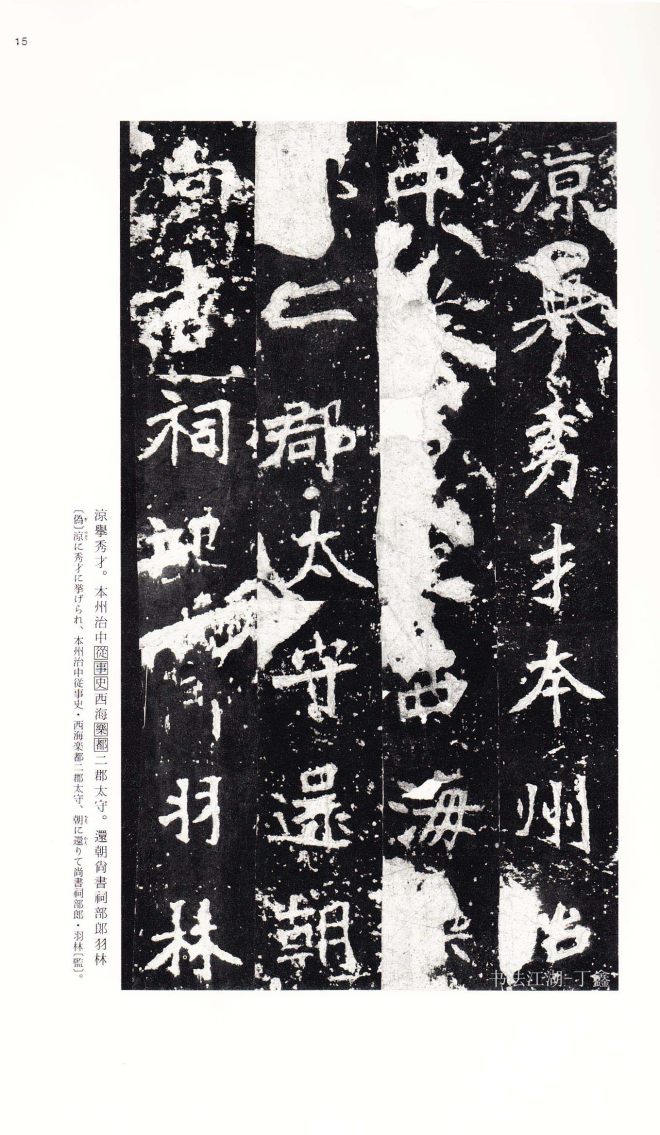 15
涼舉秀才本州治
中從事史西海樂
都二郡太守還朝
尚書祠部郎羽林
涼擧秀才。本州治中從事史西海樂都二郡太守。還朝尙書祠部郎羽林
〔偽〕涼に秀才に挙げられ、本州治中従事史・西海楽都二郡太守、朝に還りて尚書祠部郎・羽林〔監〕。
书法江湖-丁鑫